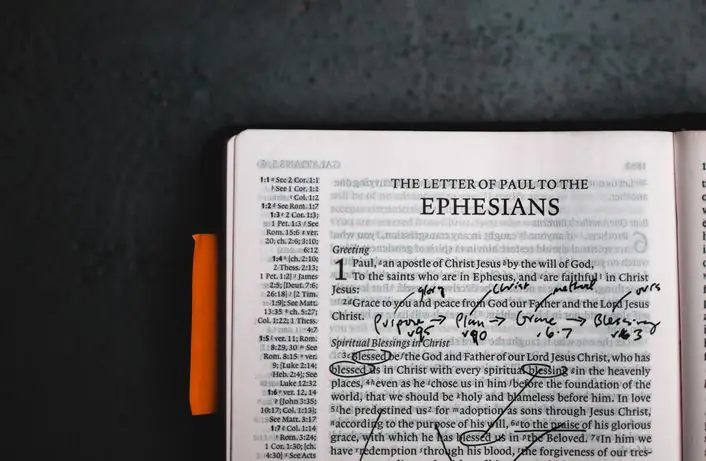 GALATIANS 5, 6
THE LETTER OF PAUL TO THE
EPHESIANS
1:1 a See 2 Cor. 1:1
b See 1 Cor. 1:1
c Col. 1:2
1:2 d See Rom. 1:7
1:3 e 2 Cor. 1:3;
1 Pet. 1:3 f See
Rom. 15:6 g ver.
20; ch. 2:6; 3:10;
6:12
1:4 h [ch. 2:10;
2 Thess. 2:13;
1 Pet. 1:2] i James
2:5; [Deut. 7:6;
26:18] j [2 Tim.
1:9]; See Matt.
13:35 k ch. 5:27;
Col. 1:22; 1 Thess.
4:7
1:5 l ver. 11; Rom.
8:29, 30 m See
Rom. 8:15 n ver.
9; [Luke 2:14;
Heb. 2:4]; See
Luke 12:32
1:6 o ver. 12, 14
p [John 3:35;
10:17; Col. 1:13];
See Matt. 3:17
1:7 q Col. 1:14
r Rom. 3:24;
1 Cor. 1:30; [ch.
4:30] s See Acts
Greeting
1 Paul, a an apostle of Christ Jesus b by the will of God,
To the saints who are in Ephesus, and c are faithful in Christ
Jesus:
glory Christ method ours
2 d Grace to you and peace from God our Father and the Lord Jesus
Christ.
Purpose → Plan → Grace → Blessing
Spiritual Blessings in Christ
3 e Blessed be f the God and Father of our Lord Jesus Christ, who has
blessed us in Christ with every spiritual blessing g in the heavenly
places, 4 h even as he i chose us in him j before the foundation of the
world, that we should be k holy and blameless before him. In love
5 l he predestined us for m adoption as sons through Jesus Christ,
n according to the purpose of his will, 6 o to the praise of his glorious
grace, with which he has blessed us in p the Beloved. 7 q In him we
have r redemption s through his blood, t the forgiveness of our tres-